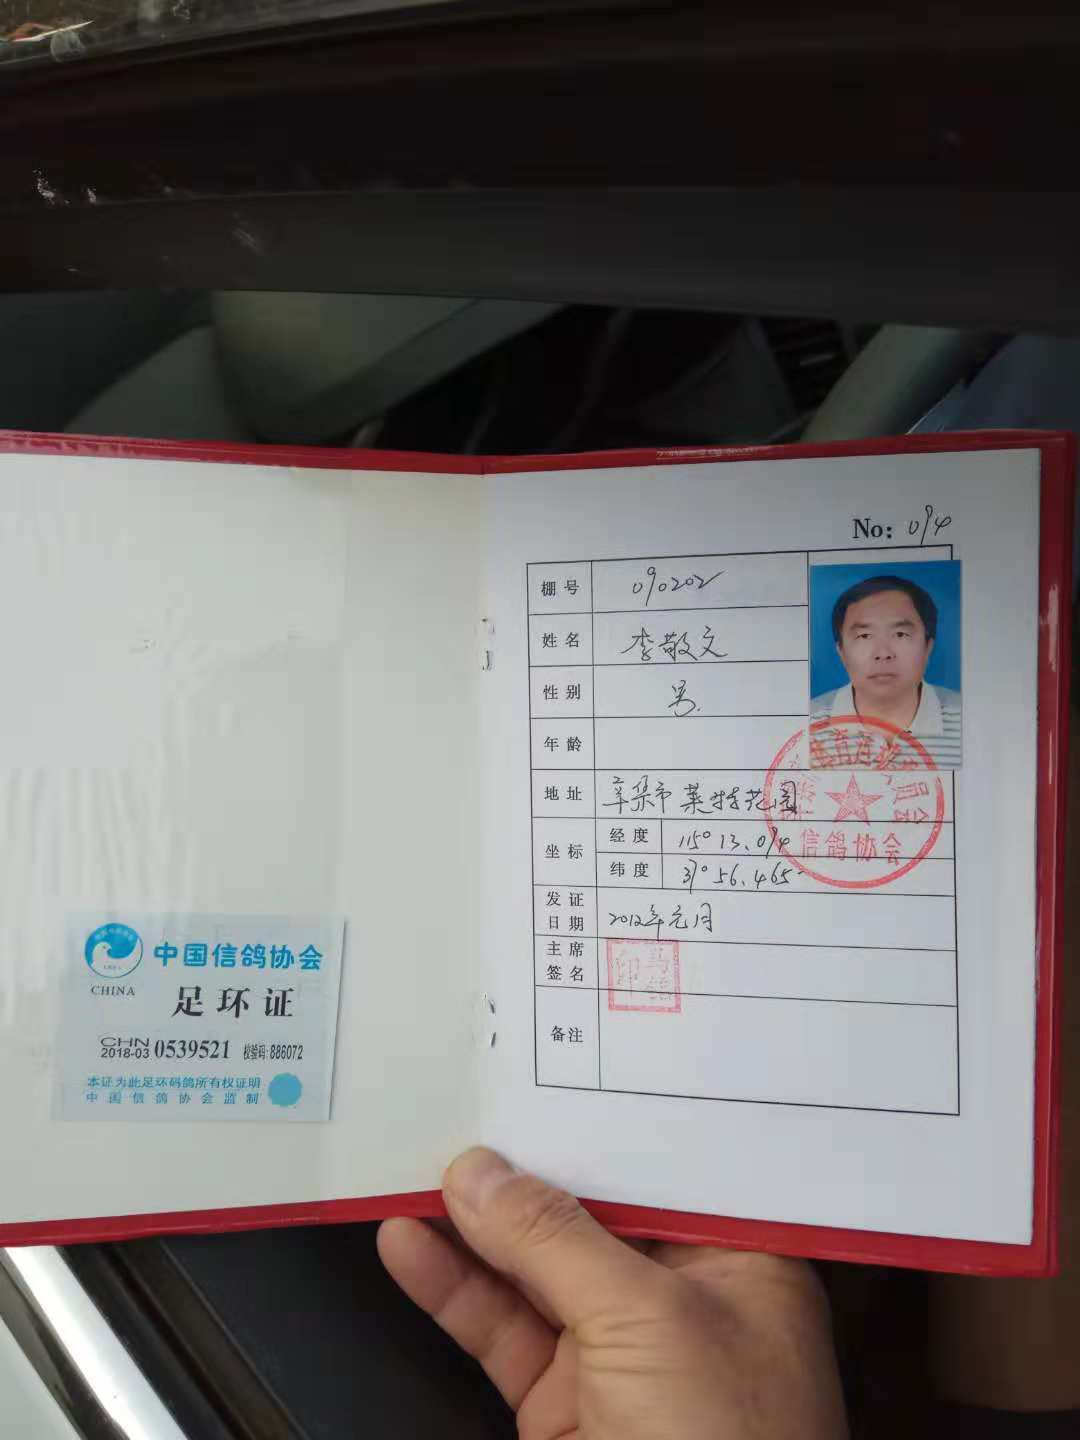 中国信鸽协会
CHINA
足环证
CHN
2018-03 0539521 校验码:886072
本证为此足环码鸽所有权证明
中国信鸽协会监制
No: 094
棚号 090202
姓名 李敬文
性别 男
年龄
地址 辛集市莱特花园
坐标 经度 115° 13.094
纬度 37° 56.465
信鸽协会
发证日期 2012年元月
主席签名
备注